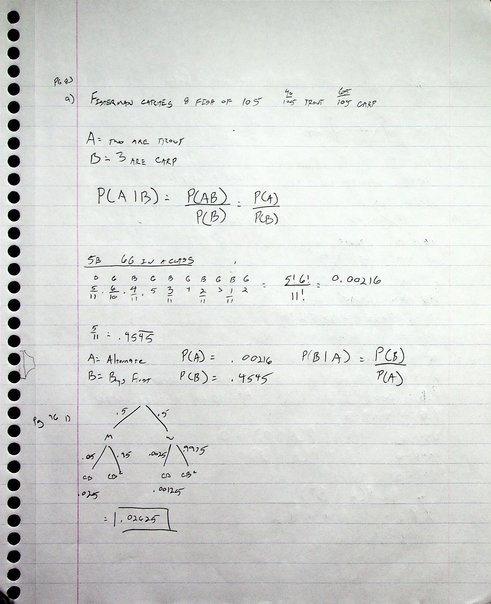 a) FISHERMAN CATCHES 8 FISH OF 105 40/105 TROUT 65/105 CARP
A = TWO ARE TROUT
B = 3 ARE CARP
P(A|B) = P(AB)/P(B) = P(A)/P(B)
5B 6G IN A CLASS
G B G B G B G B G
5/11 · 6/10 · 4/11 · 5 3/11 4 2/11 3 1/11 2 = 5! 6!/11! = 0.00216
5/11 = .4545
A = Alternate P(A) = .00216 P(B|A) = P(B)/P(A)
B = Boy First P(B) = .4545
Pg 46 1)
.5 .5
M
.05 .95 .0025 .9975
CB CBᶜ CB CBᶜ
.025 .00125
= .02625